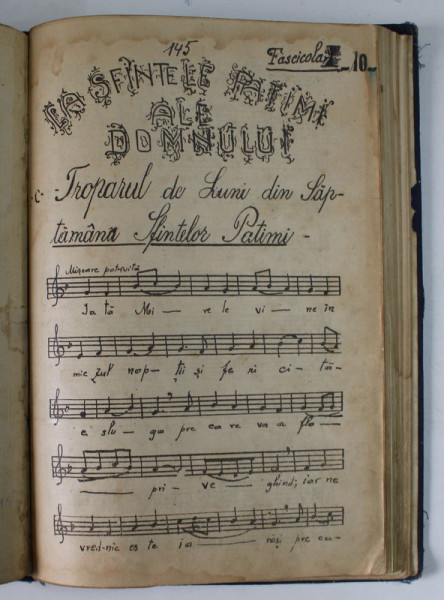 145
Fascicola 10
LA SFINTELE PATIMI
ALE
DOMNULUI
Troparul de Luni din Săp-
tămâna Sfintelor Patimi -
Mișcare potrivită
Ia tă Mi — re le vi — ne în
mie zul nop — ții și fe ri ci — tă-
e slu — ga pre ca re va a fla —
— pri — ve — ghind; iar ne
vred-nic es te ia — răși pre ca-